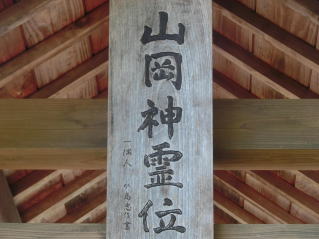 山岡神霊位